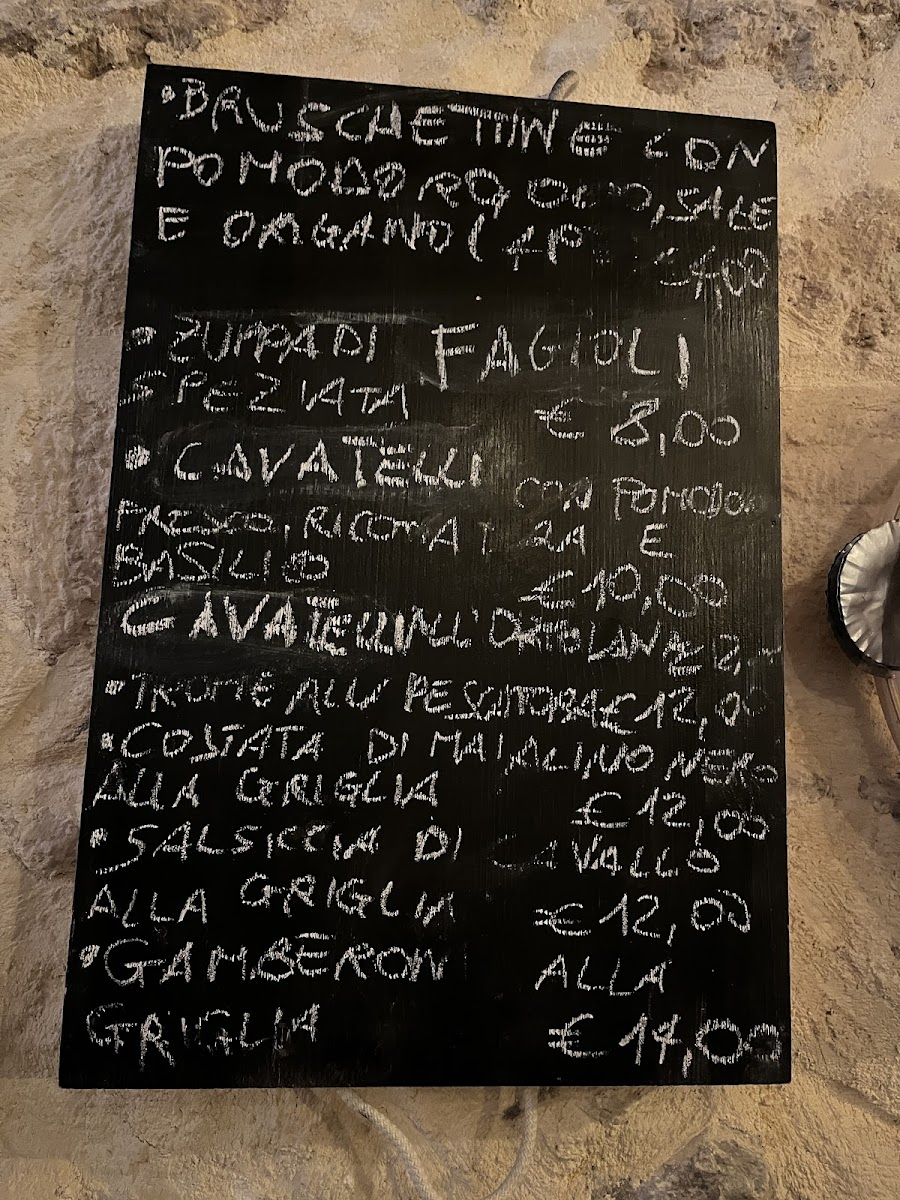 •BRUSCHETTINE CON
POMODORO, OLIO, SALE
E ORIGANO (4P €4,00
•ZUPPA DI FAGIOLI
SPEZIATA €8,00
•CAVATELLI CON POMODORO
FRESCO, RICOTTA E
BASILICO €10,00
CAVATELLI ALL'ORTOLANA
ALLA €12,00
•COSTATA DI MAIALINO NERO
ALLA GRIGLIA €12,00
•SALSICCIA DI CAVALLO
ALLA GRIGLIA €12,00
•GAMBERONI ALLA
GRIGLIA €14,00